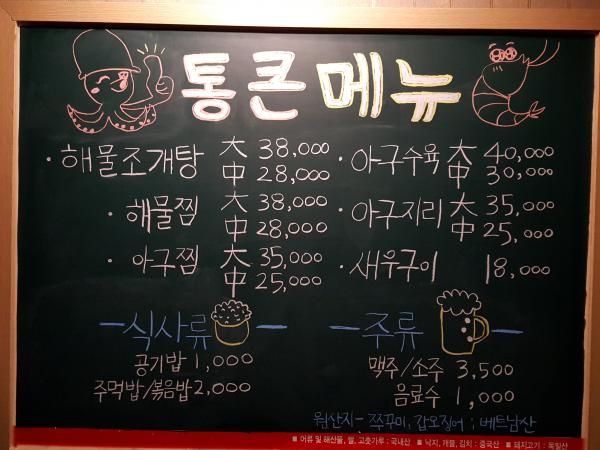 통큰메뉴
· 해물조개탕 大 38,000
中 28,000
· 아구수육 大 40,000
中 30,000
· 해물찜 大 38,000
中 28,000
· 아구지리 大 35,000
中 25,000
· 아구찜 大 35,000
中 25,000
· 새우구이 18,000
-식사류-
공기밥 1,000
주먹밥/볶음밥 2,000
-주류-
맥주/소주 3,500
음료수 1,000
원산지- 쭈꾸미, 갑오징어 : 베트남산
■ 어류 및 해산물, 쌀, 고춧가루 : 국내산 ■ 낙지, 개불, 김치 : 중국산 ■ 돼지고기 : 독일산